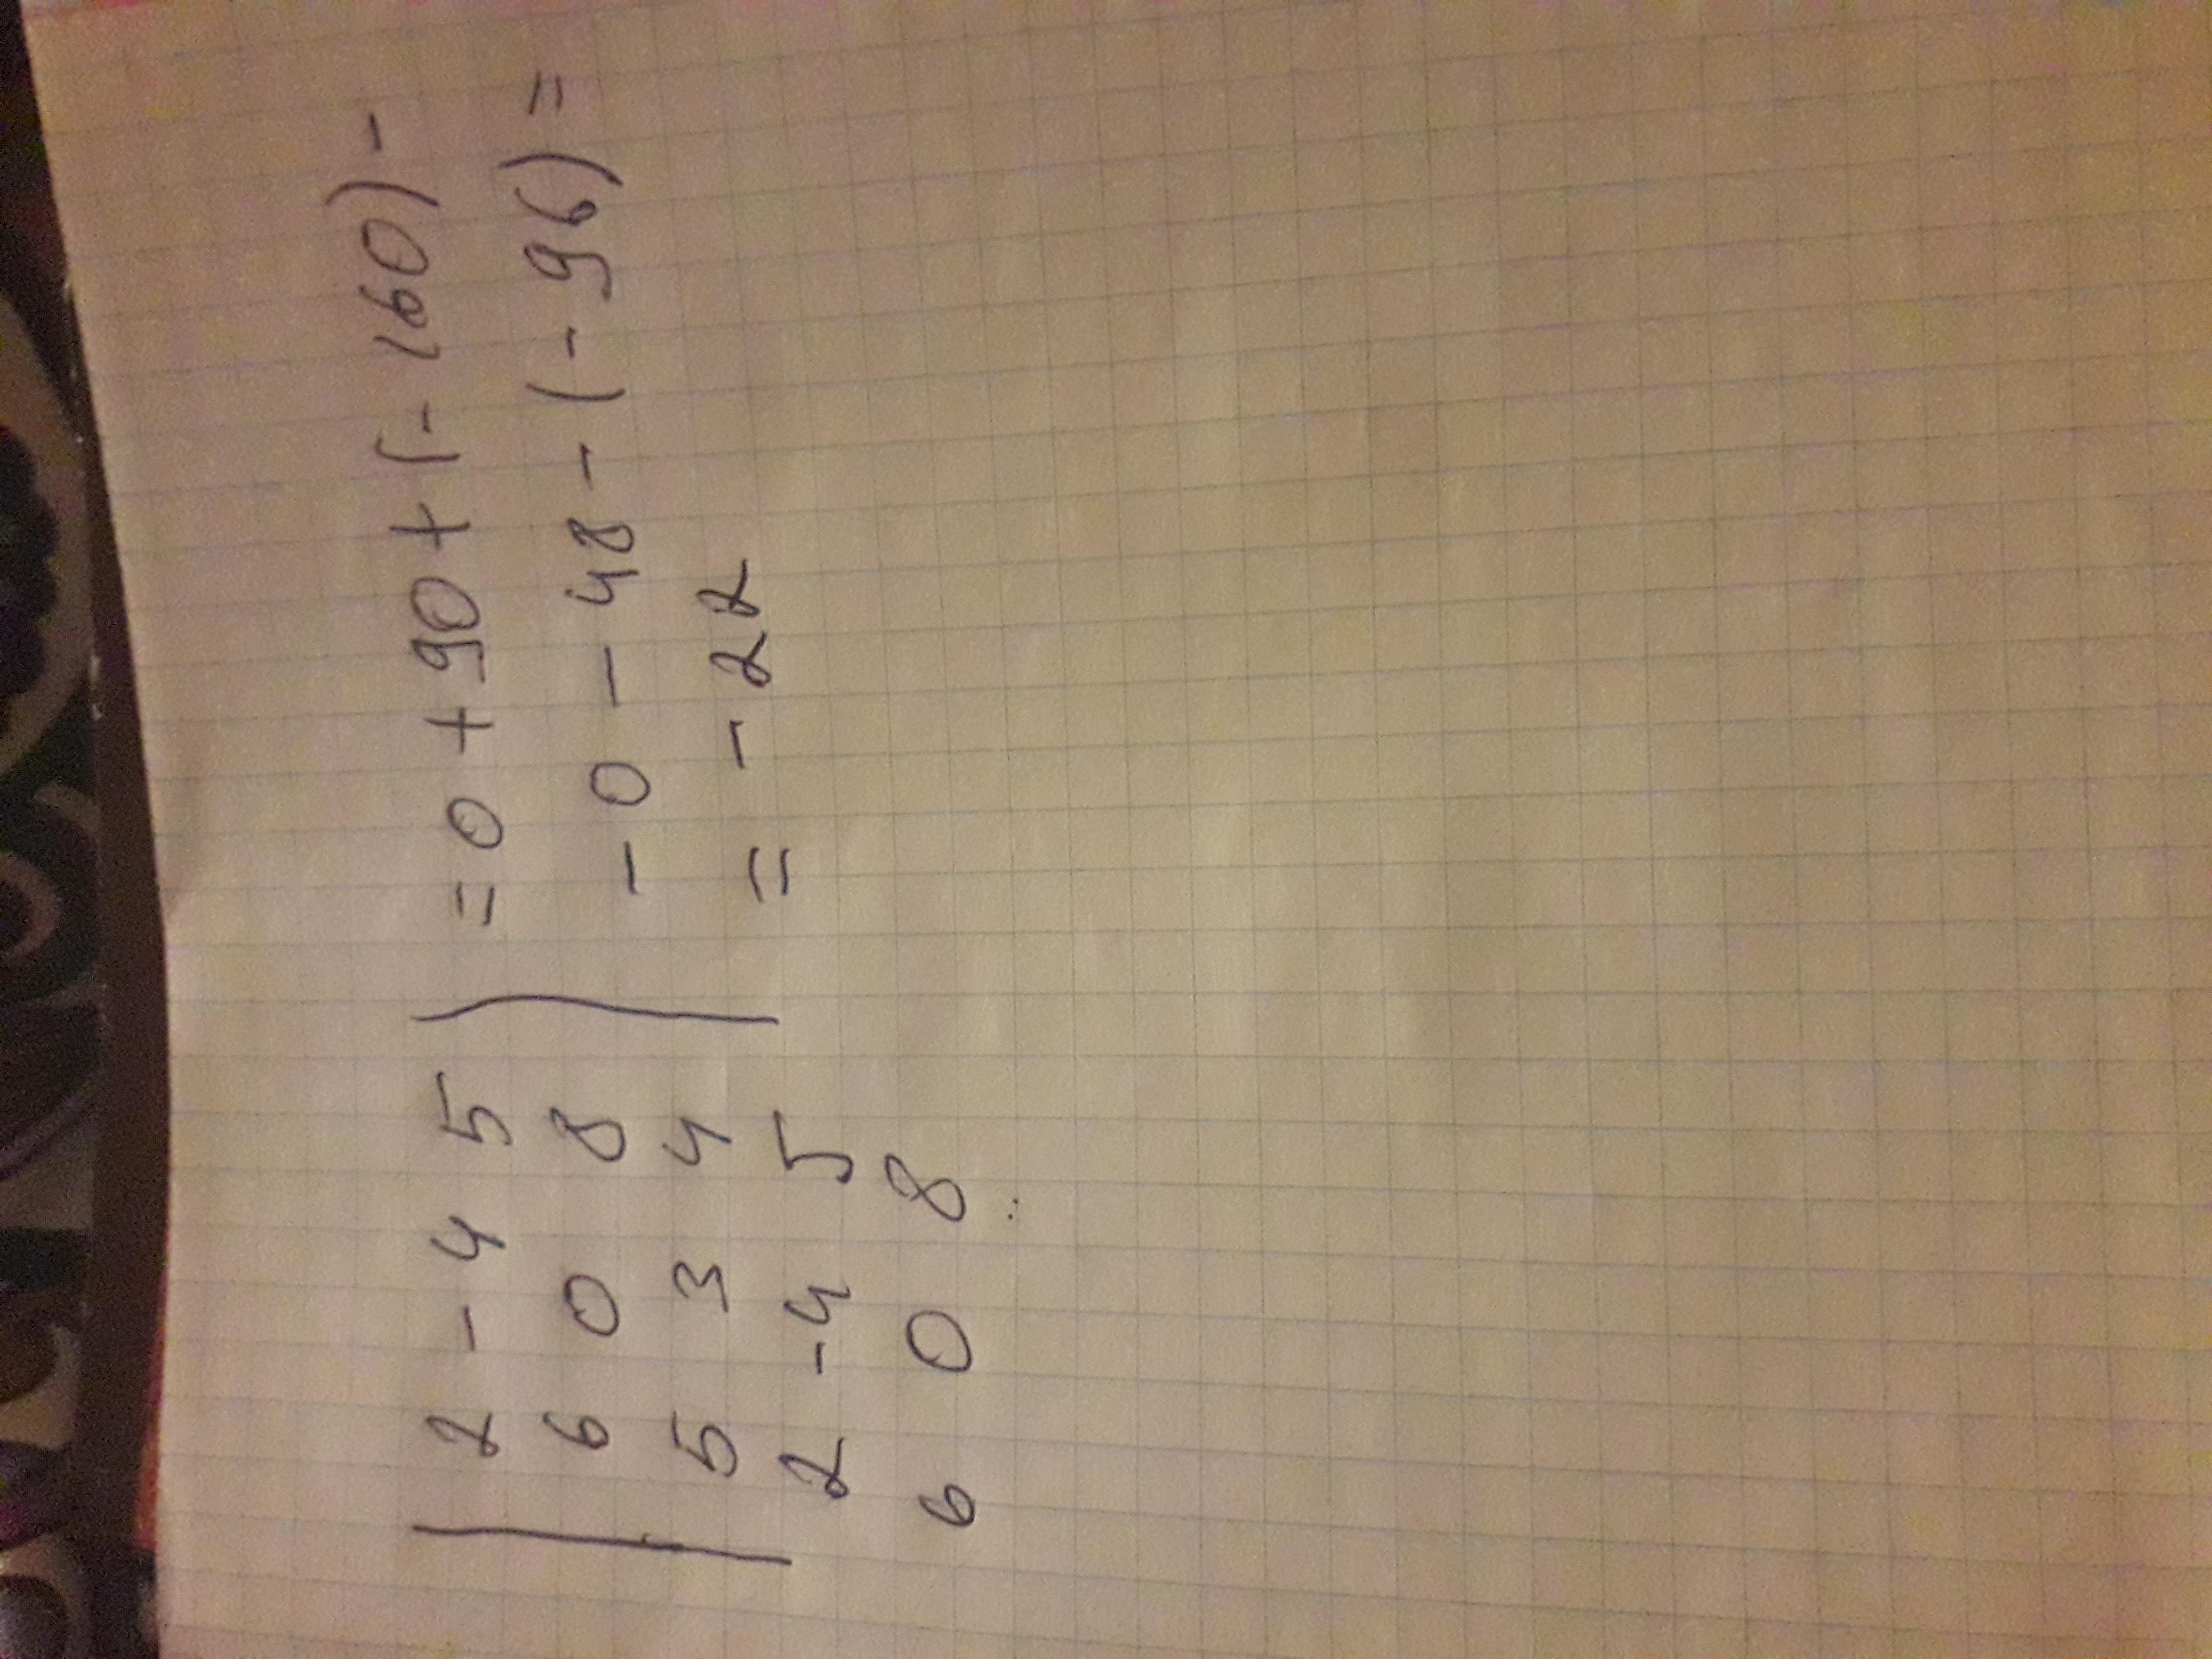 | 2 -4 5 | = 0 + 90 + (-160) -
6 0 8 - 0 - 48 - (-96) =
5 3 4 = -22
2 -4 5
6 0 8